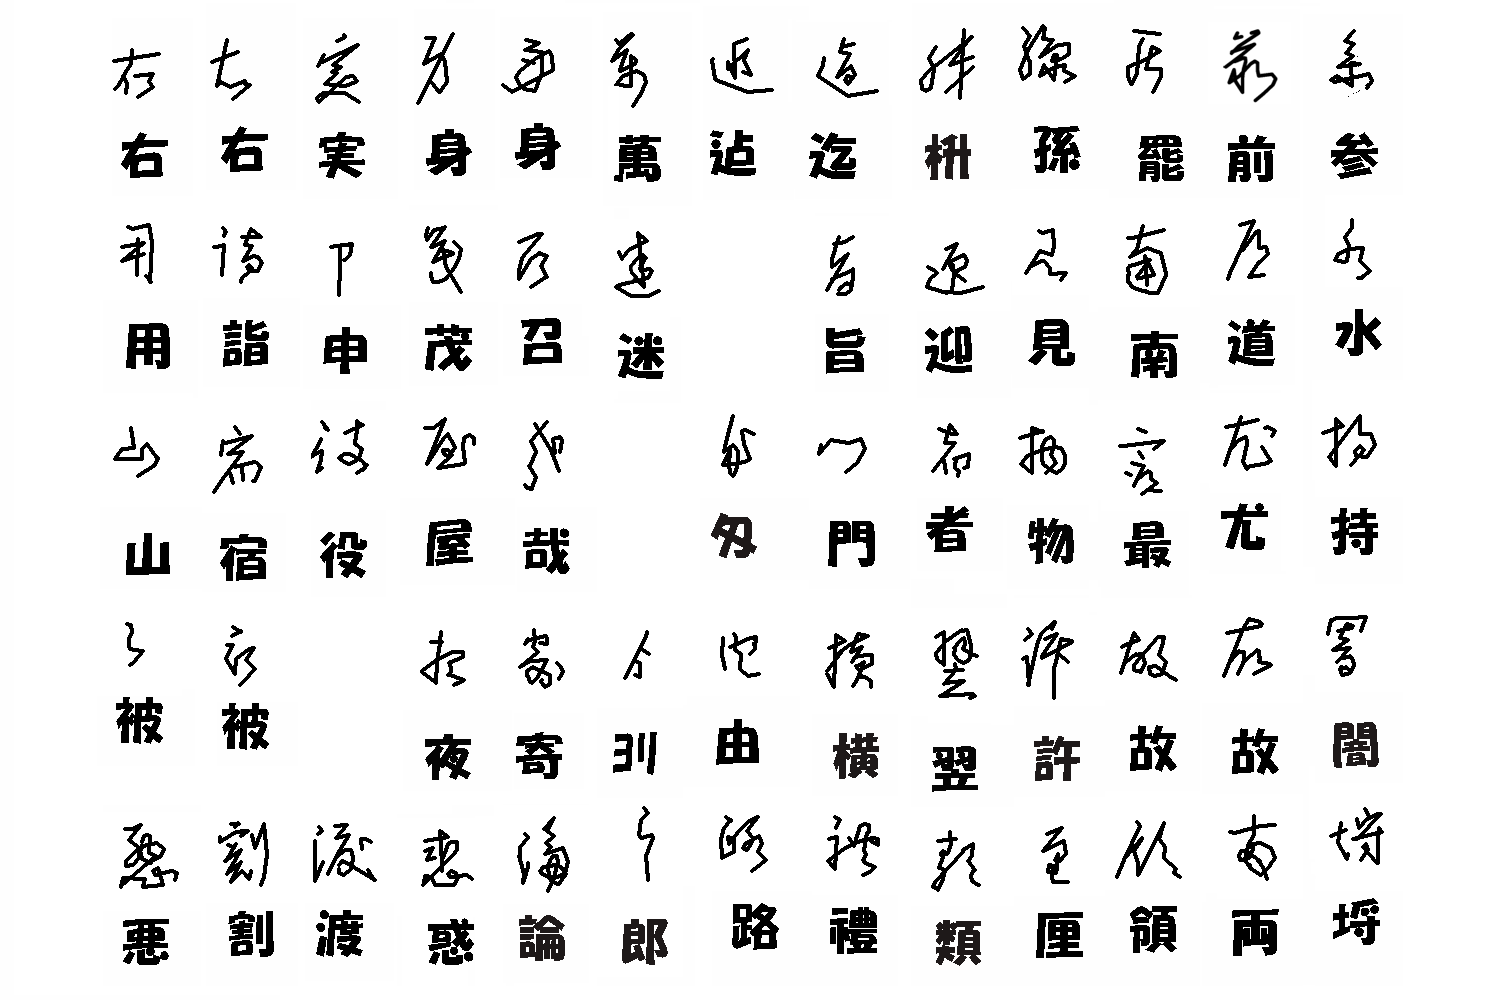 右 右 実 身 身 萬 迠 迄 枡 孫 罷 前 参
用 詣 申 茂 召 迷 旨 迎 見 南 道 水
山 宿 役 屋 哉 匁 門 者 物 最 尤 持
被 被 夜 寄 刕 由 横 翌 許 故 故 闇
悪 割 渡 惑 論 郎 路 禮 類 厘 領 両 埒